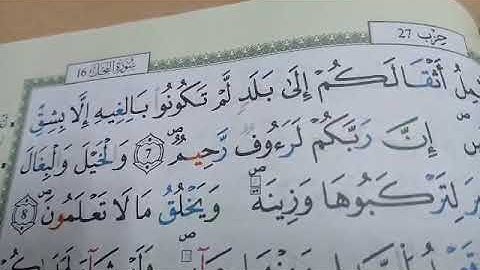 حزب 27
سورة النحل 16
أَثْقَالَكُمْ إِلَىٰ بَلَدٍ لَّمْ تَكُونُوا بَالِغِيهِ إِلَّا بِشِقِّ
إِنَّ رَبَّكُمْ لَرَءُوفٌ رَّحِيمٌ 7 وَالْخَيْلَ وَالْبِغَالَ
لِتَرْكَبُوهَا وَزِينَةً وَيَخْلُقُ مَا لَا تَعْلَمُونَ 8